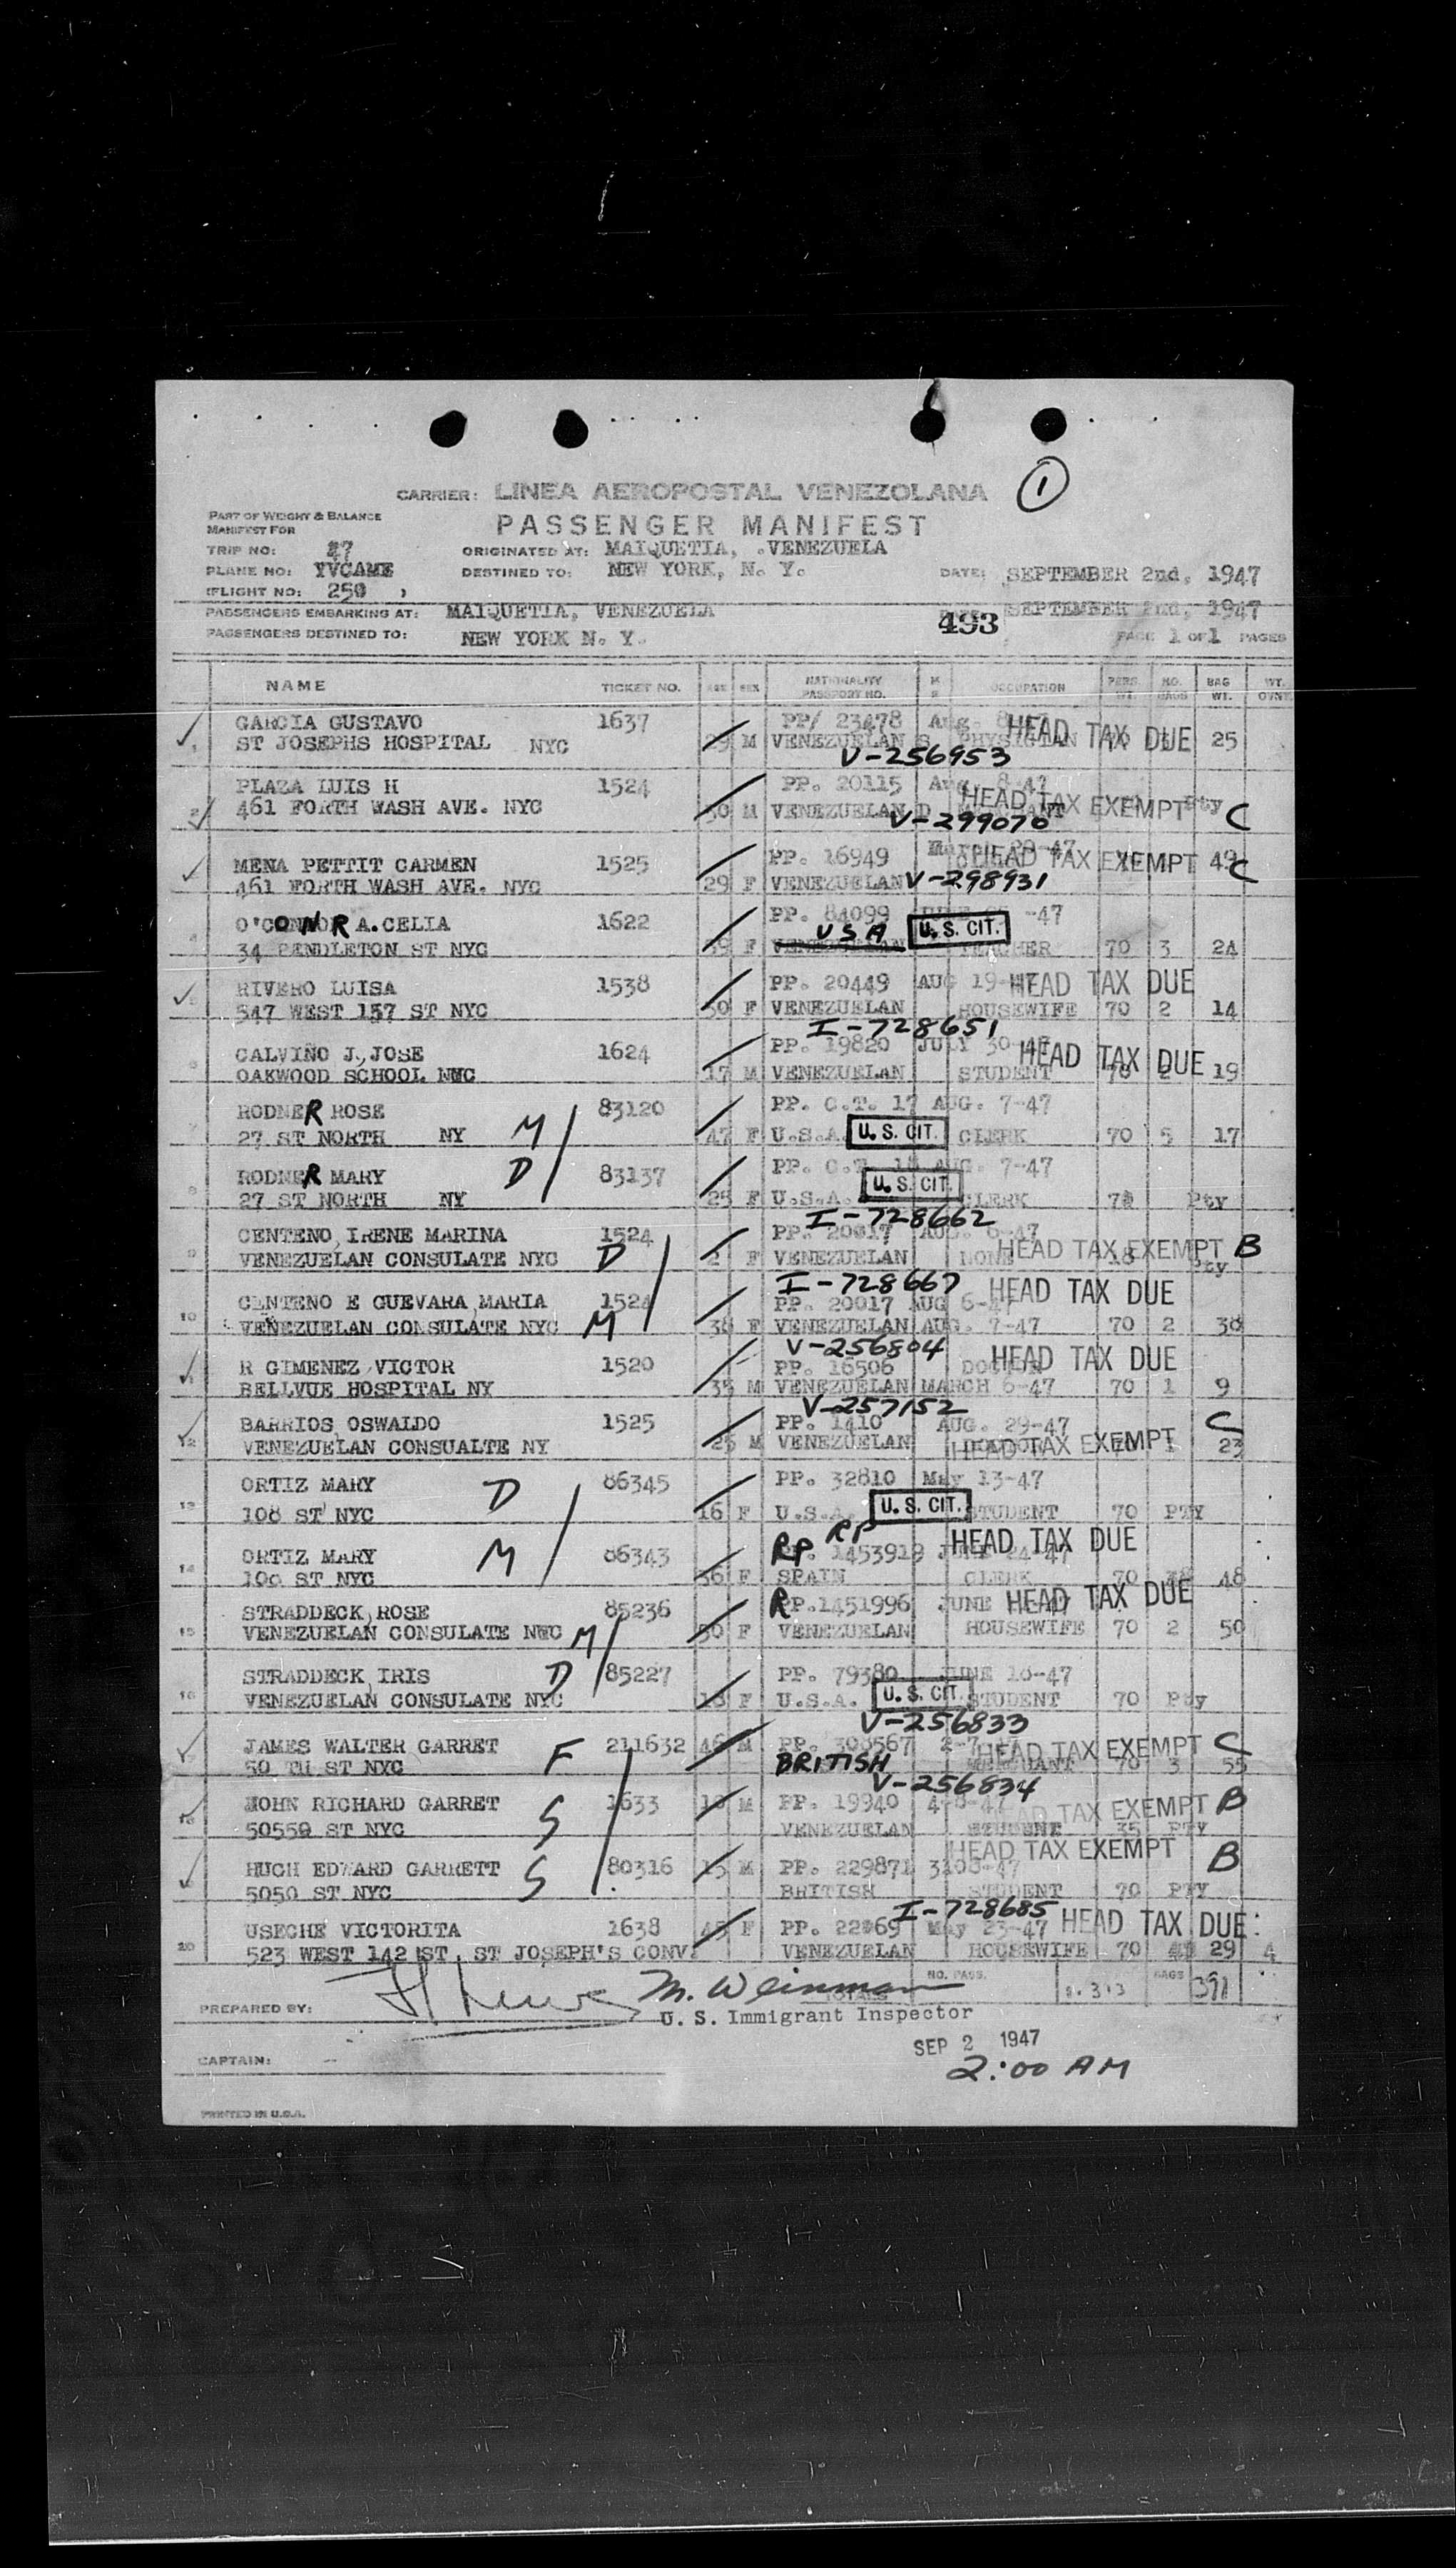 1
CARRIER: LINEA AEROPOSTAL VENEZOLANA
PART OF WEIGHT & BALANCE
MANIFEST FOR
PASSENGER MANIFEST
TRIP NO: 27 ORIGINATED AT: MAIQUETIA, VENEZUELA
PLANE NO: YVCAME DESTINED TO: NEW YORK, N. Y. DATE: SEPTEMBER 2nd, 1947
(FLIGHT NO: 250 )
PASSENGERS EMBARKING AT: MAIQUETIA, VENEZUELA 493 SEPTEMBER 2nd, 1947
PASSENGERS DESTINED TO: NEW YORK N. Y. PAGE 1 OF 1 PAGES
NAME TICKET NO. AGE SEX NATIONALITY PASSPORT NO. M S OCCUPATION PERS. WT. NO. BAGS BAG WT. WT. OVNT
GARCIA GUSTAVO 1637 PP/ 23478 Aug. HEAD TAX DUE
1 ST JOSEPHS HOSPITAL NYC 29 M VENEZUELAN S PHYSICIAN 25
V-256953
PLAZA LUIS H 1524 PP. 20115 Aug. 8-47
2 461 FORTH WASH AVE. NYC M VENEZUELAN HEAD TAX EXEMPT Pty C
V-299070
MENA PETTIT CARMEN 1525 PP. 16949 HEAD TAX EXEMPT 49 C
461 FORTH WASH AVE. NYC 29 F VENEZUELAN V-298931
O'CONNOR A. CELIA 1622 PP. 84099 JUNE -47
4 34 PENDLETON ST NYC 39 F VENEZUELAN USA U.S. CIT. TEACHER 70 3 24
RIVERO LUISA 1538 PP. 20449 AUG 19-47 HEAD TAX DUE
5 547 WEST 157 ST NYC 50 F VENEZUELAN HOUSEWIFE 70 2 14
I-728651
CALVIÑO J, JOSE 1624 PP. 19820 JULY 30-47 HEAD TAX DUE
6 OAKWOOD SCHOOL NYC 17 M VENEZUELAN STUDENT 70 2 19
RODNER ROSE 83120 PP. C.T. 17 AUG. 7-47
7 27 ST NORTH NY M 47 F U.S.A. U.S. CIT. CLERK 70 5 17
RODNER MARY D 83137 PP. C.T. 18 AUG. 7-47
8 27 ST NORTH NY 25 F U.S.A. U.S. CIT. CLERK Pty
I-728662
CENTENO, IRENE MARINA 1524 PP. 20017 AUG. 6-47
9 VENEZUELAN CONSULATE NYC D 2 F VENEZUELAN NONE HEAD TAX EXEMPT 18 Pty B
I-728667 HEAD TAX DUE
CENTENO E GUEVARA, MARIA 1524 PP. 20017 AUG 6-47
10 VENEZUELAN CONSULATE NYC M 38 F VENEZUELAN AUG. 7-47 70 2 38
V-256804 HEAD TAX DUE
R GIMENEZ VICTOR 1520 PP. 16506 DOCTOR
BELLVUE HOSPITAL NY 35 M VENEZUELAN MARCH 6-47 70 1 9
V-257152
BARRIOS, OSWALDO 1525 PP. 1410 AUG. 29-47 C
12 VENEZUELAN CONSUALTE NY 25 M VENEZUELAN HEAD TAX EXEMPT 23
ORTIZ MARY D 86345 PP. 32810 May 13-47
13 108 ST NYC 16 F U.S.A. U.S. CIT. STUDENT 70 PTY
RP RP HEAD TAX DUE
ORTIZ MARY M 86343 PP. 1453919
14 108 ST NYC 36 F SPAIN CLERK 70 48
STRADDECK, ROSE 85236 RP.1451996 JUNE HEAD TAX DUE
15 VENEZUELAN CONSULATE NYC M 50 F VENEZUELAN HOUSEWIFE 70 2 50
STRADDECK IRIS D 85227 PP. 79380 JUNE 18-47
16 VENEZUELAN CONSULATE NYC 18 F U.S.A. U.S. CIT. STUDENT 70 Pty
V-256833
JAMES WALTER GARRET F 211632 46 M PP. 308567 HEAD TAX EXEMPT C
17 50 TH ST NYC BRITISH MERCHANT 70 3 55
V-256834
JOHN RICHARD GARRET S 1633 M PP. 19940 HEAD TAX EXEMPT B
18 50559 ST NYC VENEZUELAN STUDENT 35 PTY
HEAD TAX EXEMPT
HUGH EDWARD GARRETT S 80316 15 M PP. 229871 B
5050 ST NYC BRITISH STUDENT 70 PTY
I-728685
USECHE VICTORITA 1638 45 F PP. 22069 May 23-47 HEAD TAX DUE
20 523 WEST 142 ST, ST JOSEPH'S CONV. VENEZUELAN HOUSEWIFE 70 29 4
M. Weinman NO. PASS. BAGS 391
PREPARED BY: TOTALS
U. S. Immigrant Inspector
SEP 2 1947
CAPTAIN: 2:00 AM
PRINTED IN U.S.A.